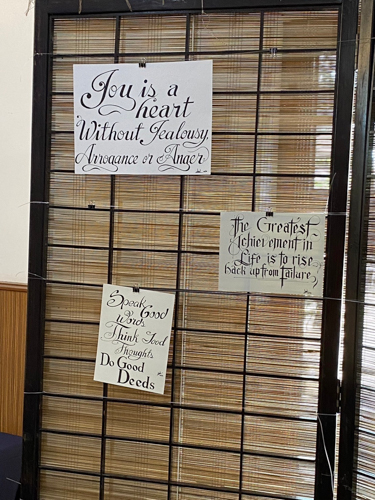 Joy is a
heart
Without Jealousy,
Arrogance or Anger
The Greatest
Achievement in
Life is to rise
back up from failure.
Speak Good
Words
Think Good
Thoughts
Do Good
Deeds